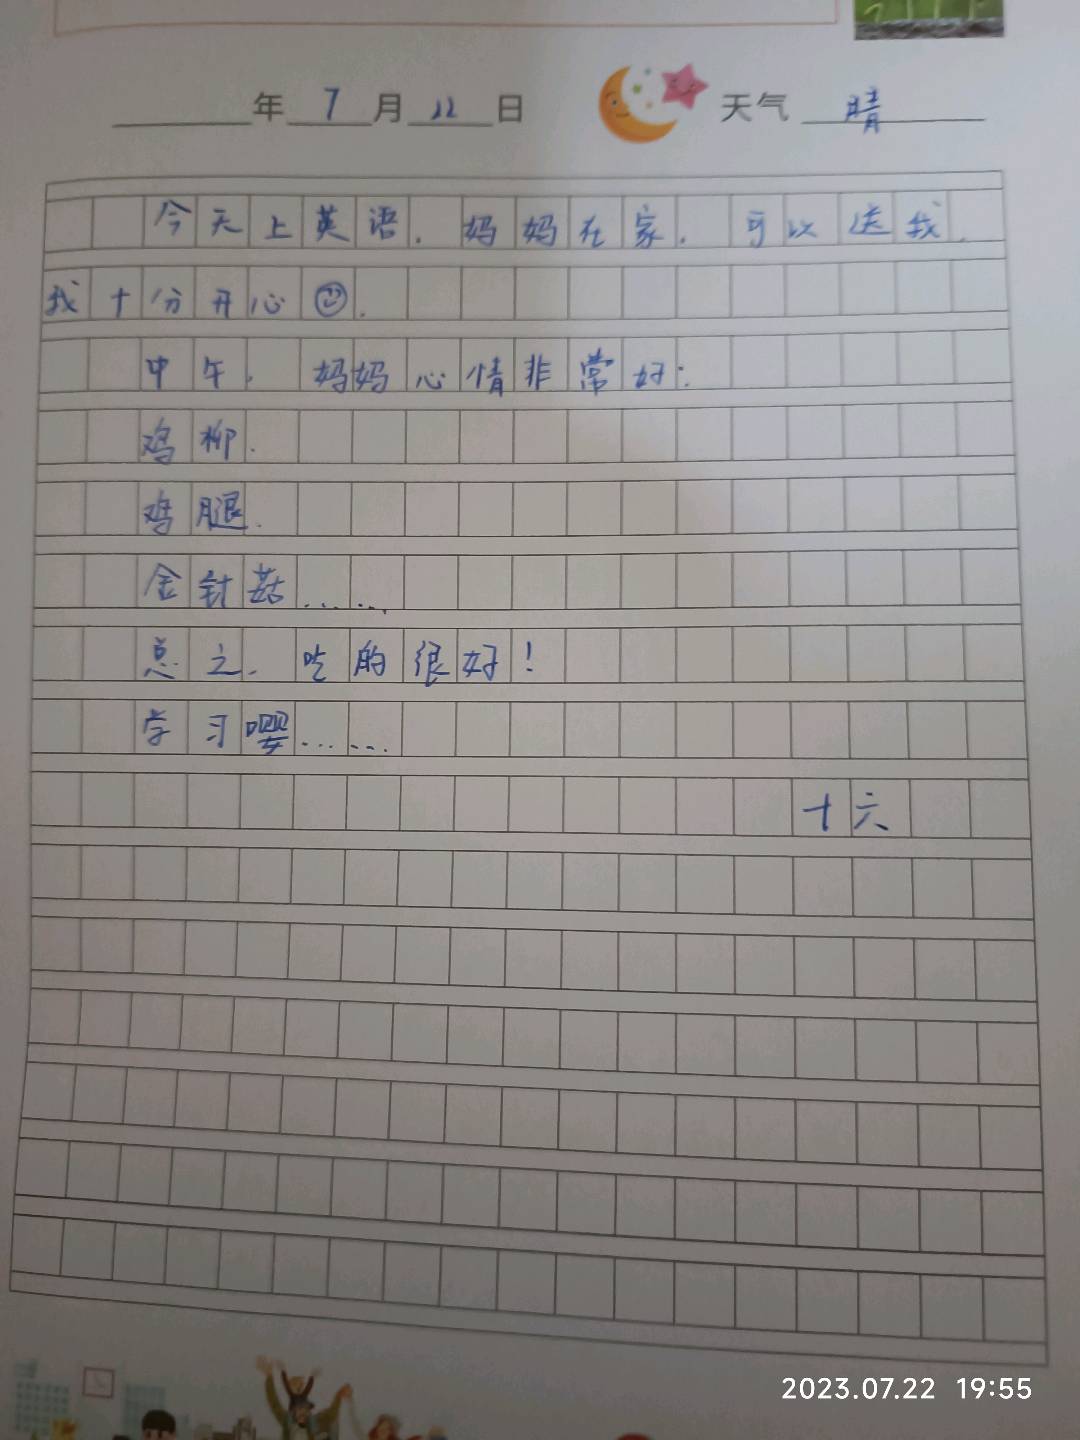 年7月22日 天气 晴
今天上英语,妈妈在家,可以送我,
我十分开心☺.
中午,妈妈心情非常好:
鸡柳.
鸡腿.
金针菇……,
总之,吃的很好!
学习嘤……
十六
2023.07.22 19:55